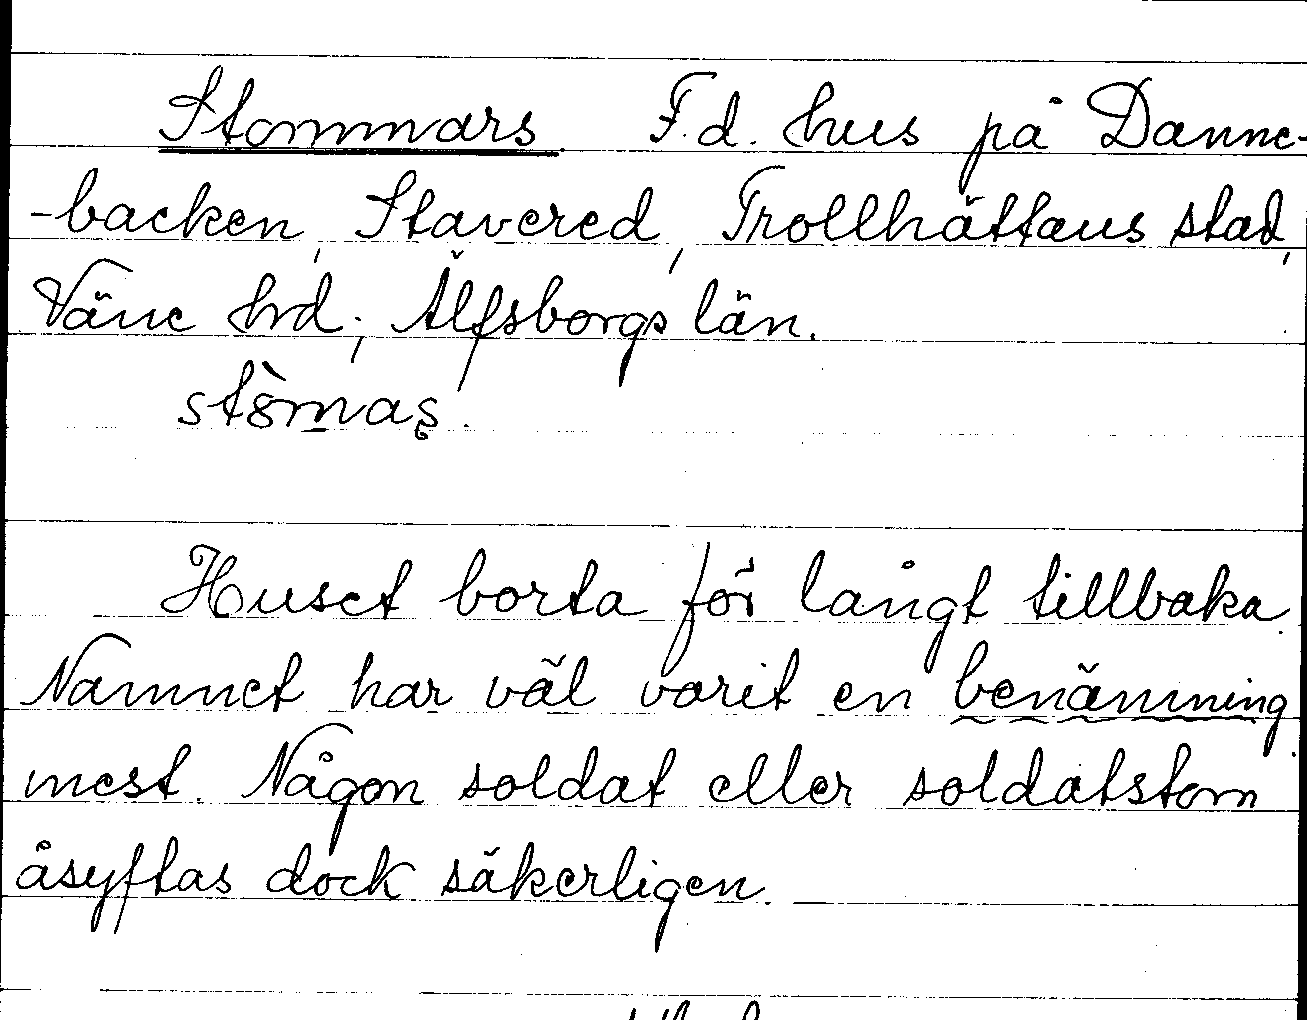 Stommars. F.d. hus på Danne-
-backen, Stavered, Trollhättans stad,
Väne hrd; Älfsborgs län.
Huset borta för långt tillbaka.
Namnet har väl varit en benämning
mest. Någon soldat eller soldatstom
åsyftas dock säkerligen.